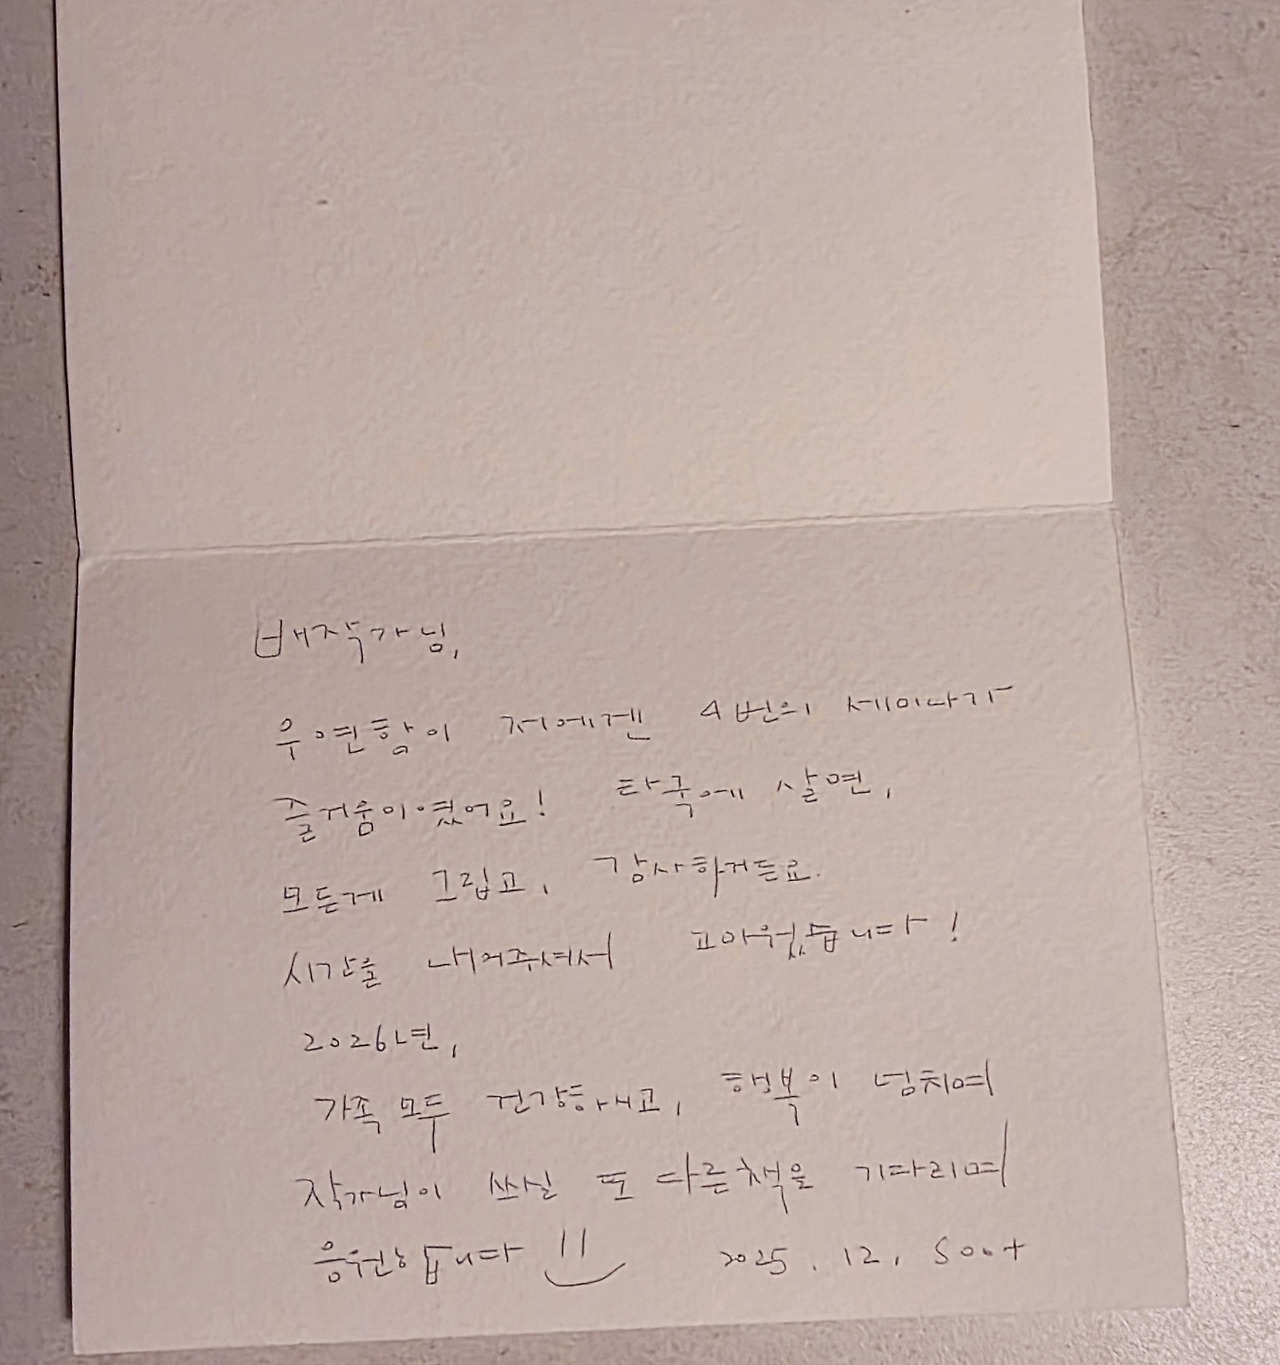 배작가님,
우연함이 저에겐 4번의 세미나가
즐거움이였어요! 타국에 살면,
모든게 그립고, 감사하거든요.
시간을 내어주셔서 고마웠습니다!
2026년,
가족 모두 건강하시고, 행복이 넘치며
작가님이 쓰실 또 다른 책을 기다리며
응원합니다
2025. 12,